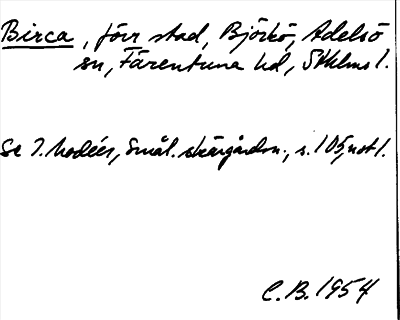 Birca, förr stad, Björkö, Adelsö
sn, Färentuna hd, Sthlms l.
Se I. Modéer, Smål. skärgårdsn., s. 105, not 1.
C.B. 1954